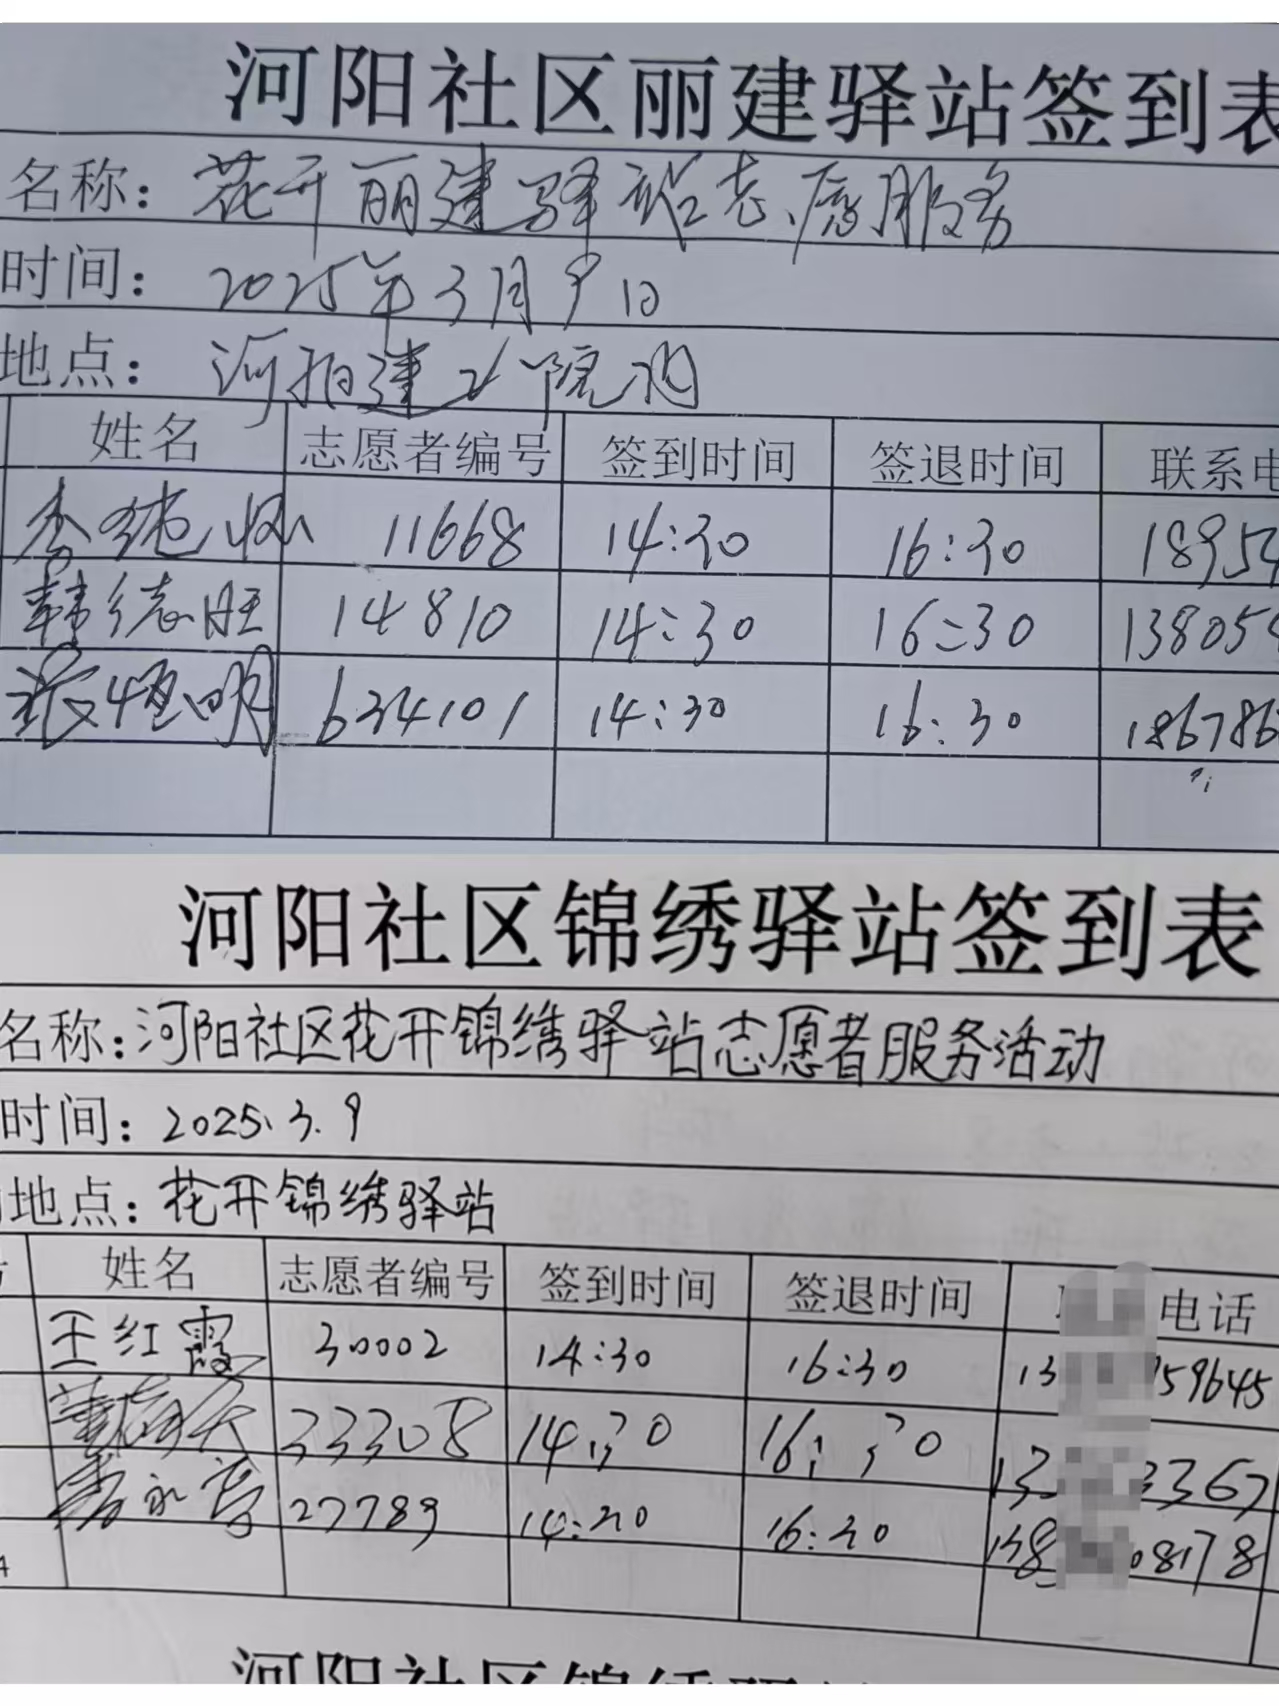 河阳社区丽建驿站签到表
名称：花开丽建驿站志愿服务
时间：2025年3月9日
地点：河阳建工院内
姓名 志愿者编号 签到时间 签退时间 联系电
11668 14:30 16:30 18954
韩德旺 14810 14:30 16:30 138054
张恒明 634101 14:30 16:30 186786
河阳社区锦绣驿站签到表
名称：河阳社区花开锦绣驿站志愿者服务活动
时间：2025.3.9
地点：花开锦绣驿站
姓名 志愿者编号 签到时间 签退时间 电话
王红霞 30002 14:30 16:30 13 59645
33308 14:30 16:30 13 3367
27789 14:30 16:30 138 08178
河阳社区锦绣驿